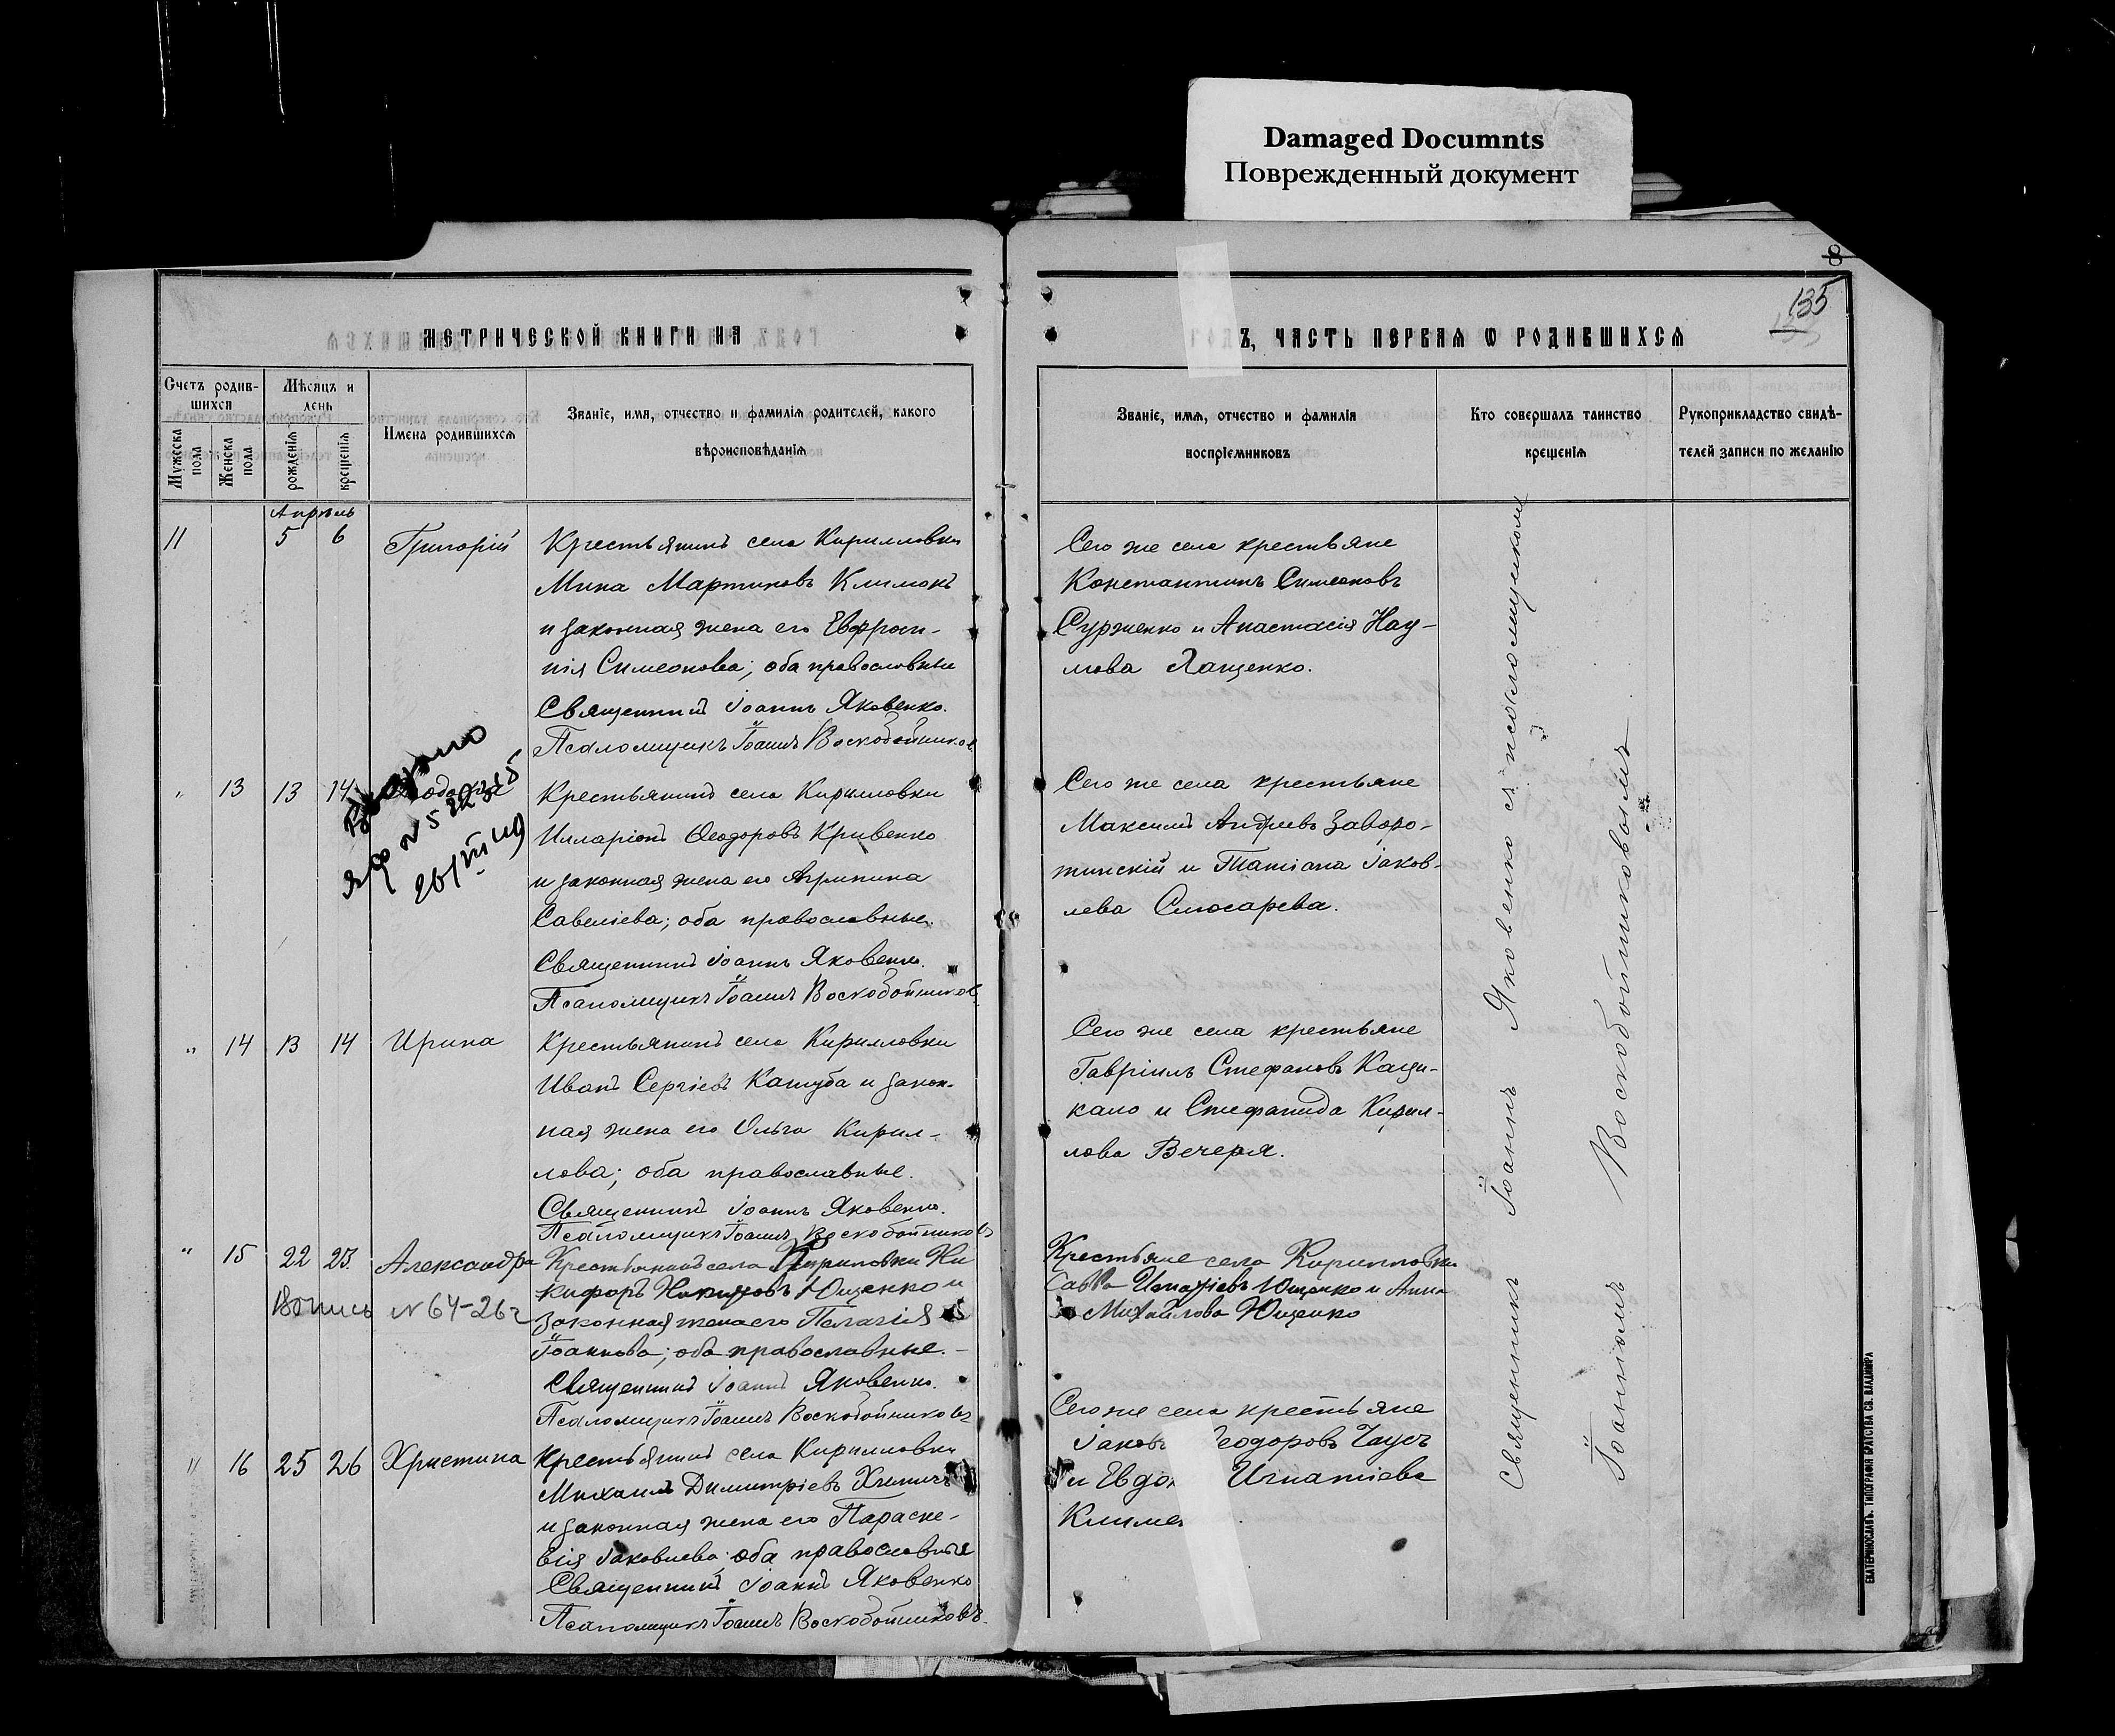 Damaged Documnts
Поврежденный документ
8
135
МЕТРИЧЕСКОЙ КНИГИ НА
ГОДЪ, ЧАСТЬ ПЕРВАЯ Ѡ РОДИВШИХСЯ
Счетъ родив-
шихся
Мужеска
пола
Женска
пола
Мѣсяцъ и
день
рожденія
крещенія
Имена родившихся
Званіе, имя, отчество и фамилія родителей, какого
вѣроисповѣданія
Званіе, имя, отчество и фамилія
воспріемниковъ
Кто совершалъ таинство
крещенія
Рукоприкладство свидѣ-
телей записи по желанію
Апрѣль
11 5 6 Григорій
Крестьянинъ села Кирилловки
Мина Мартиновъ Климокъ
и законная жена его Евфроси-
нія Симеонова; оба православные
Священникъ Іоаннъ Яковенко.
Псаломщикъ Іоаннъ Воскобойников
Сего же села крестьяне
Константинъ Симеоновъ
Сурженко и Анастасія Нау-
мова Лащенко.
13 13 14
Выдано
N 5
26/VIII 19
Крестьянинъ села Кирилловки
Илларіонъ Ѳеодоровъ Кривенко
и законная жена его Агрипина
Савеліева; оба православные.
Священникъ Іоаннъ Яковенко.
Псаломщикъ Іоаннъ Воскобойников
Сего же села крестьяне
Максимъ Андреевъ Заворо-
тинскій и Татіана Іаков-
лева Слюсарева.
" 14 13 14 Ирина
Крестьянинъ села Кирилловки
Иванъ Сергіевъ Кашуба и закон-
ная жена его Ольга Кирил-
лова; оба православные.
Священникъ Іоаннъ Яковенко.
Псаломщикъ Іоаннъ Воскобойниковъ
Сего же села крестьяне
Гавріилъ Стефановъ Каци-
кало и Стефанида Кирил-
лова Вечеря.
" 15 22 23 Александра
N 64-26г
Крестьянинъ села Кириловки Ни
кифоръ Никитовъ Ющенко и
законная жена его Пелагія
Іоаннова; оба православные.-
Священникъ Іоаннъ Яковенко.
Псаломщикъ Іоаннъ Воскобойниковъ
Крестьяне села Кирилловки
Савва Игнатіевъ Ющенко и Анна
Михайлова Ющенко
" 16 25 26 Христина
Крестьянинъ села Кирилловки
Михаилъ Димитріевъ
и законная жена его Параске-
вія Іаковлева; оба православные
Священникъ Іоаннъ Яковенко
Псаломщикъ Іоаннъ Воскобойниковъ.
Сего же села крестьяне
Іаковъ Ѳеодоровъ Гаусъ
и Евдо Игнатіева
Климе
Священникъ Іоаннъ Яковенко съ псаломщикомъ
Іоанномъ Воскобойниковымъ
ЕКАТЕРИНОСЛАВЪ. ТИПОГРАФІЯ БРАТСТВА СВ. ВЛАДИМІРА